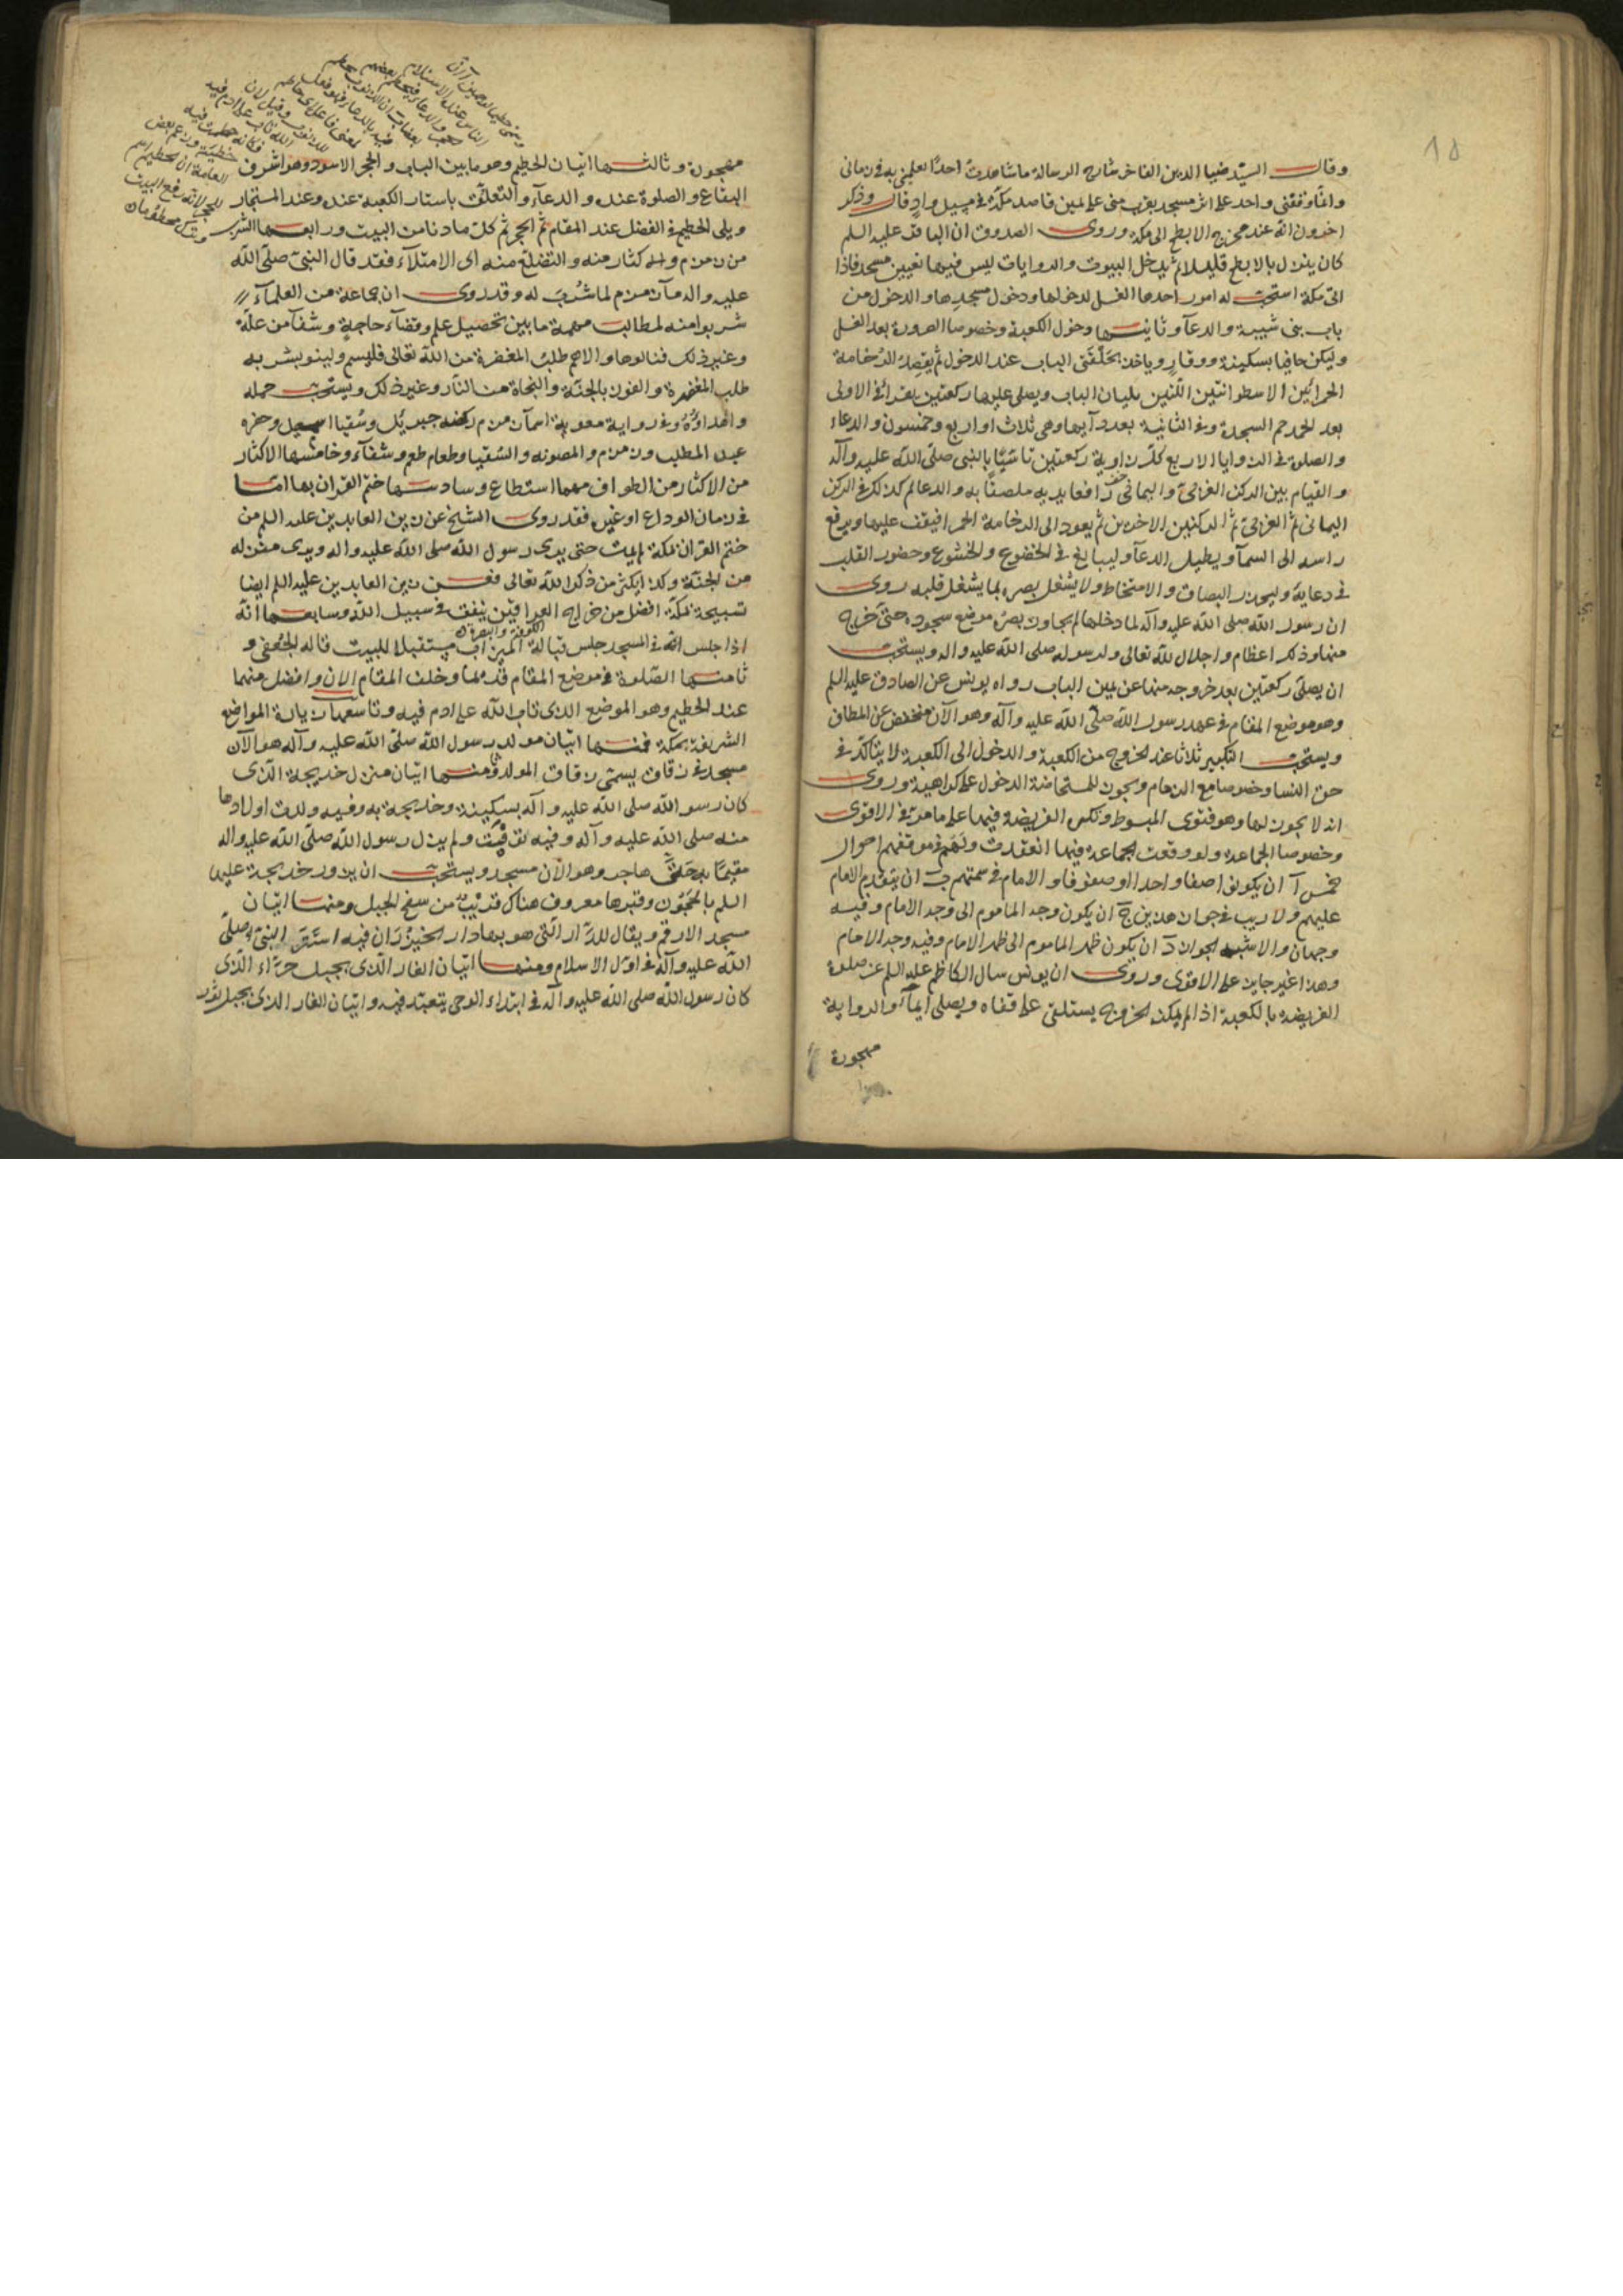 ١٥
وقال السيّد ضيا الدين الفاخر شارح الرسالة ما شاهدت احدًا يعلمنى به فى زمانى
وانما وقفنى واحد على اثر مسجد بقرب منى على يمين قاصد مكة فى مسيل وادٍ قال وذكر
اخرون انه عند مخرج الابطح الى مكة وروى الصدوق ان الباقر عليه السلم
كان ينزل بالابطح قليلا ثم يدخل البيوت والروايات ليس فيها تعيين مسجد فاذا
اتى مكة استحب له امور احدها الغسل لدخولها ودخول مسجدها والدخول من
باب بنى شيبة والدعآ وثانيها دخول الكعبة وخصوصا الصرورة بعد الغسل
وليكن حافيا بسكينة ووقار وياخذ بحلقتى الباب عند الدخول ثم يقصد الرخامة
الحمرا بين الاسطوانتين اللتين يليان الباب ويصلى عليها ركعتين يقرا فى الاولى
بعد الحمد حم السجدة وفى الثانية بعدد آيها وهى ثلاث او اربع وخمسون والدعاء
والصلوة فى الزوايا الاربع كل زاوية ركعتين تاسّيًا بالنبى صلى الله عليه وآله
والقيام بين الركن الغربى واليمانى رافعا يديه ملصقًا به والدعا ثم كذلك فى الركن
اليمانى ثم الغربى ثم الركنين الاخرين ثم يعود الى الرخامة الحمرا فيقف عليها ويرفع
راسه الى السمآ ويطيل الدعآ وليبالغ فى الخضوع والخشوع وحضور القلب
فى دعايه وليحذر البصاق والامتخاط ولا يشغل بصره بما يشغل قلبه روى
ان رسول الله صلى الله عليه وآله لما دخلها لم يجاوز بصره موضع سجوده حتى خرج
منها وذلك اعظام واجلال لله تعالى ولرسوله صلى الله عليه واله ويستحب
ان يصلى ركعتين بعد خروجه منها عن يمين الباب رواه يونس عن الصادق عليه السلم
وهو موضع المقام فى عهد رسول الله صلى الله عليه وآله وهو الآن منخفض عن المطاف
ويستحب التكبير ثلاثا عند الخروج من الكعبة والدخول الى الكعبة لا يتاكد فى
حق النسا وخصوصا مع الزحام ويجوز للمستحاضة الدخول على كراهية وروى
انه لا يجوز لها وهو فتوى المبسوط وتكره الفريضة فيها على ما مر فى الاقوى
وخصوصا الجماعة ولو وقعت الجماعة فيها انعقدت ولهم فى موقفهم احوال
خمس آ ان يكونوا صفا واحدا او صفوفا والامام فى سمتهم ب ان يتقدم الامام
عليهم ولا ريب فى جواز هذين ج ان يكون وجه الماموم الى وجه الامام وفيه
وجهان والاشبه الجواز د ان يكون ظهر الماموم الى ظهر الامام وفيه وجه الامام
وهذا غير جايز على الاقوى وروى ان يونس سال الكاظم عليه السلم عن صلوة
الفريضة بالكعبة اذا لم يمكن الخروج يستلقى على قفاه ويصلى ايمآء والرواية
مهجورة
مهجورة وثالثها اتيان الحطيم وهو ما بين الباب والحجر الاسود وهو اشرف
البقاع والصلوة عنده والدعآء والتعلق باستار الكعبة عنده وعند المستجار
ويلى الحطيم فى الفضل عند المقام ثم الحجر ثم كل ما دنا من البيت ورابعها الشرب
من زمزم والاكثار منه والتضلع منه اى الامتلآء فقد قال النبى صلى الله
عليه واله مآء زمزم لما شُرب له وقد روى ان جماعة من العلمآء
شربوا منه لمطالب مهمة ما بين تحصيل علم وقضآء حاجة وشفآء من علة
وغير ذلك فنالوها والاهم طلب المغفرة من الله تعالى فليسم ولينو بشربه
طلب المغفرة والفوز بالجنة والنجاة من النار وغير ذلك ويستحب حمله
واهداؤه وفى رواية معوية اسمآء زمزم ركضه جبرئيل وسُقيا اسمعيل وحفره
عبد المطلب وزمزم والمصونه والسقيا وطعام طعم وشفآء وخامسها الاكثار
من الاكثار من الطواف مهما استطاع وسادسها ختم القران بها اما
فى زمان الوداع او غيره فقد روى الشيخ عن زين العابدين عليه السلم من
ختم القران بمكة لم يمت حتى يرى رسول الله صلى الله عليه واله ويرى منزله
من الجنة وكذا يكثر من ذكر الله تعالى فعن زين العابدين عليه السلم ايضا
تسبيحة بمكة افضل من خراج العراقين ينفق فى سبيل الله وسابعها انه
الكوفة والبصرة
اذا جلس فى المسجد جلس قبالة الميزاب مستقبلا للبيت قاله الجعفى و
ثامنها الصلوة فى موضع المقام قديما وخلف المقام الان وافضل منهما
عند الحطيم وهو الموضع الذى تاب الله على ادم فيه وتاسعها زيارة المواضع
الشريفة بمكة فمنها اتيان مولد رسول الله صلى الله عليه وآله هو الآن
مسجد فى زقاق يسمى زقاق المولد ومنها اتيان منزل خديجة الذى
كان رسول الله صلى الله عليه وآله يسكنه وخديجة به وفيه ولدت اولادها
منه صلى الله عليه وآله وفيه توفيت ولم يزل رسول الله صلى الله عليه واله
مقيمًا به حتى هاجر وهو الآن مسجد ويستحب ان يزور خديجة عليها
السلم بالحجون وقبرها معروف هناك قريب من سفح الجبل ومنها اتيان
مسجد الارقم ويقال للدار التى هو بها دار الخيزران فيه استتر النبى صلى
الله عليه وآله فى اول الاسلام ومنها اتيان الغار الذى بجبل حرآء الذى
كان رسول الله صلى الله عليه وآله فى ابتداء الوحى يتعبد فيه واتيان الغار الذى بجبل ثور